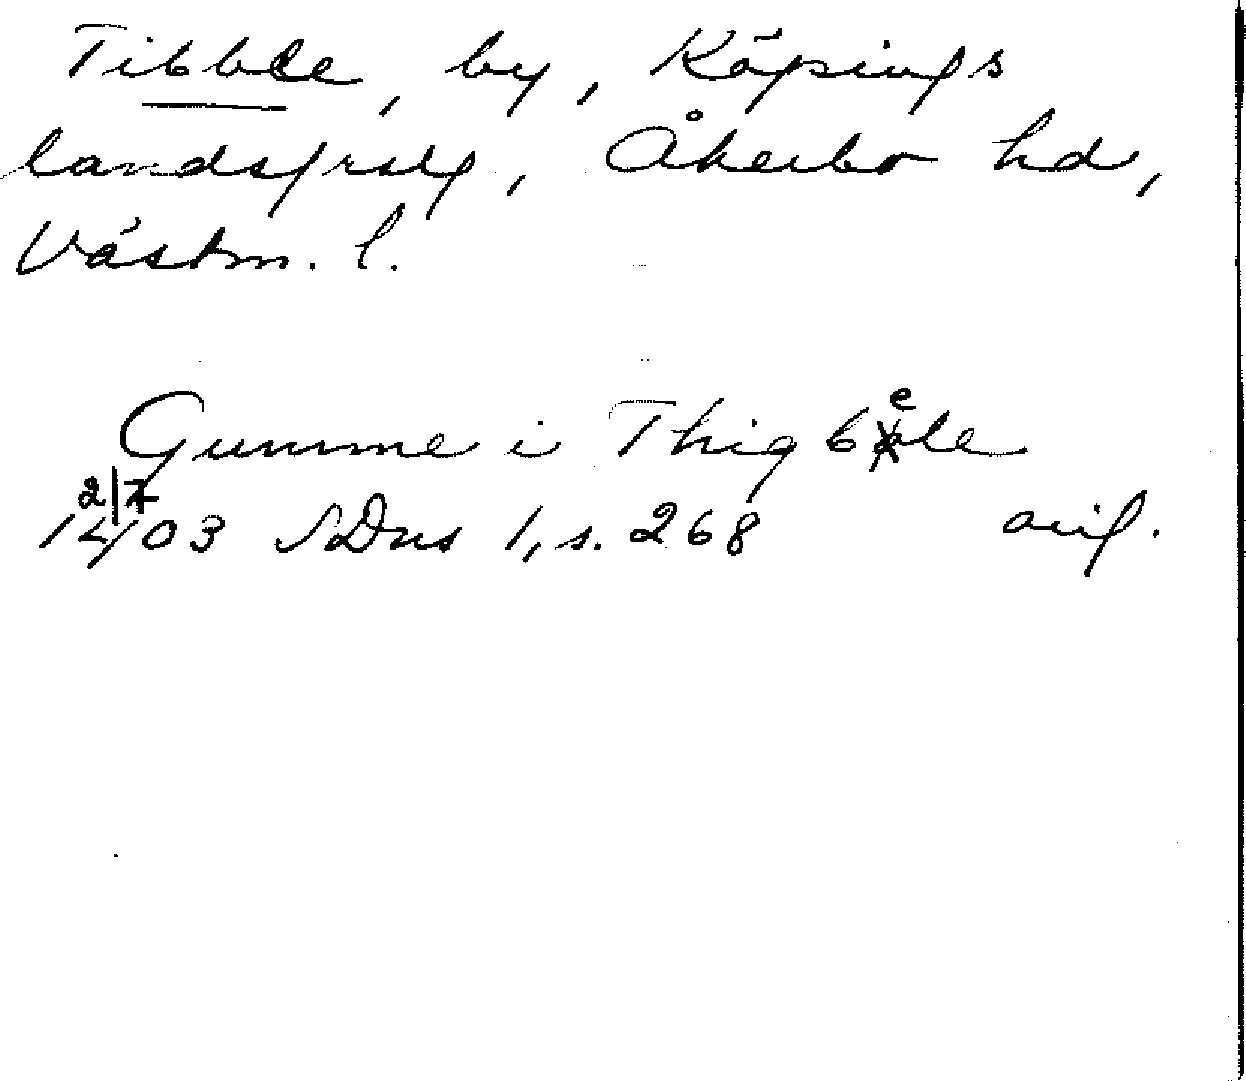 Tibble, by, Köpings
landsfrslg, Åkerbo hd,
Västm. l.
Gumme i Thigbele
2/7
1403 SDns 1, s. 268 avif.